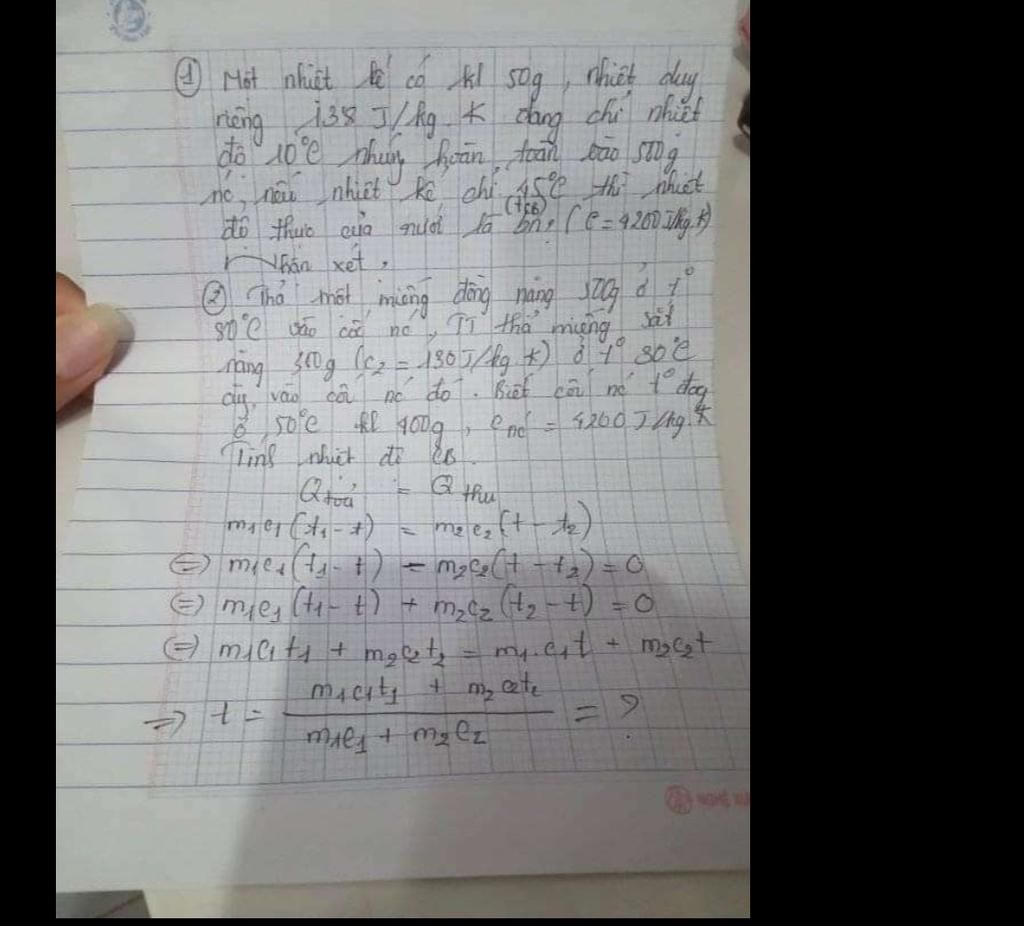 ① Một nhiệt kế có kl 50g, nhiệt dug
riêng 138 J/kg.K đang chỉ nhiệt
độ 10°C nhúng hoàn toàn vào 500g
nc, nếu nhiệt kế chỉ 45°C thì nhiệt
(tCB)
độ thực của nước là bn, (C = 4200 J/kg.K)
Nhận xét,
② Thả một miếng đồng nặng 500g ở t°
80°C vào cốc nc, TT thả miếng sắt
nặng 300g (c₂ = 130J/kg.K) ở t° 30°C
vào cốc nc đó. Biết cốc nc t° đag
ở 50°C kl 400g, cnc = 4200 J/kg.K
Tính nhiệt độ CB.
Q toả = Q thu
m₁c₁(t₁-t) = m₂c₂(t-t₂)
⇔ m₁c₁(t₁-t) - m₂c₂(t-t₂) = 0
⇔ m₁c₁(t₁-t) + m₂c₂(t₂-t) = 0
⇔ m₁c₁t₁ + m₂c₂t₂ = m₁.c₁t + m₂c₂t
m₁c₁t₁ + m₂c₂t₂
⇒ t = = ?
m₁c₁ + m₂c₂